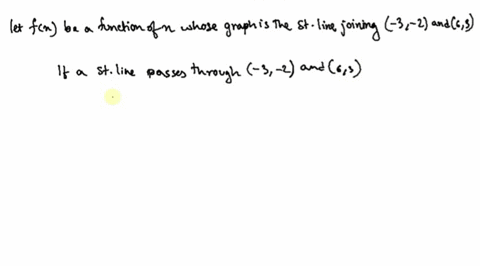 let f(x) be a function of x whose graph is the st. line joining (-3,-2) and (6,3)
If a st. line passes through (-3,-2) and (6,3)